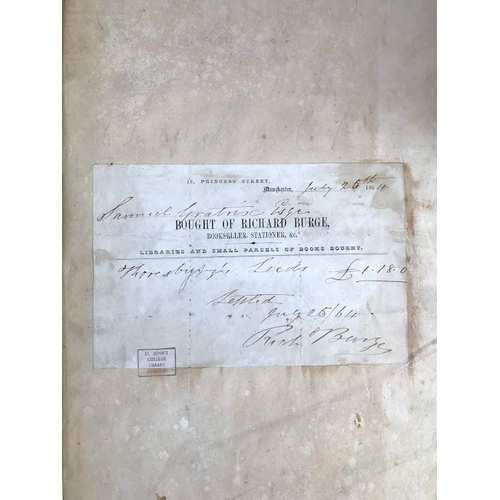 PRINCESS STREET,
Manchester, July 26th 1864
Samuel Esqre
BOUGHT OF RICHARD BURGE,
BOOKSELLER, STATIONER, &c.
LIBRARIES AND SMALL PARCELS OF BOOKS BOUGHT.
Thoresby's Leeds £1.18.0
Settled
July 26/64
Richd Burge
ST. JOHN'S
COLLEGE
LIBRARY